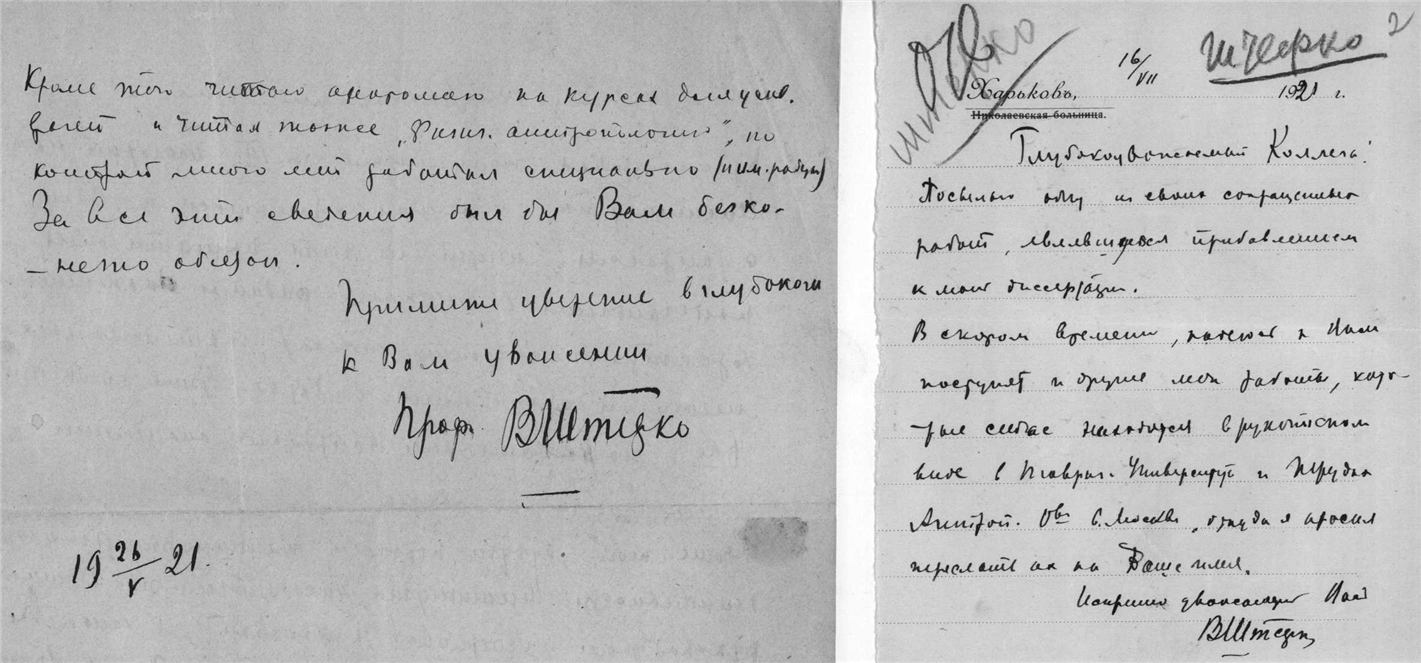 Кроме того читаю анатомию на курсах
и читал также „Физич. антропологию“, по
которой много лет работал специально
За все эти сведения был бы Вам безко-
-нечно обязан.
Примите уверение в глубоком
к Вам уважении
Проф. ВШтецко
19 26/V 21.
Штефко 2
16/VII
Харьковъ, 1921 г.
Николаевская больница.
Глубокоуважаемый Коллега!
Посылаю одну из своих сокращенных
работ, являвшуюся прибавлением
к моей диссертации.
В скором времени, надеюсь к Вам
поступят и другие мои работы, кото-
рые сейчас находятся в рукописном
виде в Таврич. Университете и Трудах
Антроп. Общ. в Москве, откуда я просил
переслать их на Ваше имя.
Искренно уважающий Вас